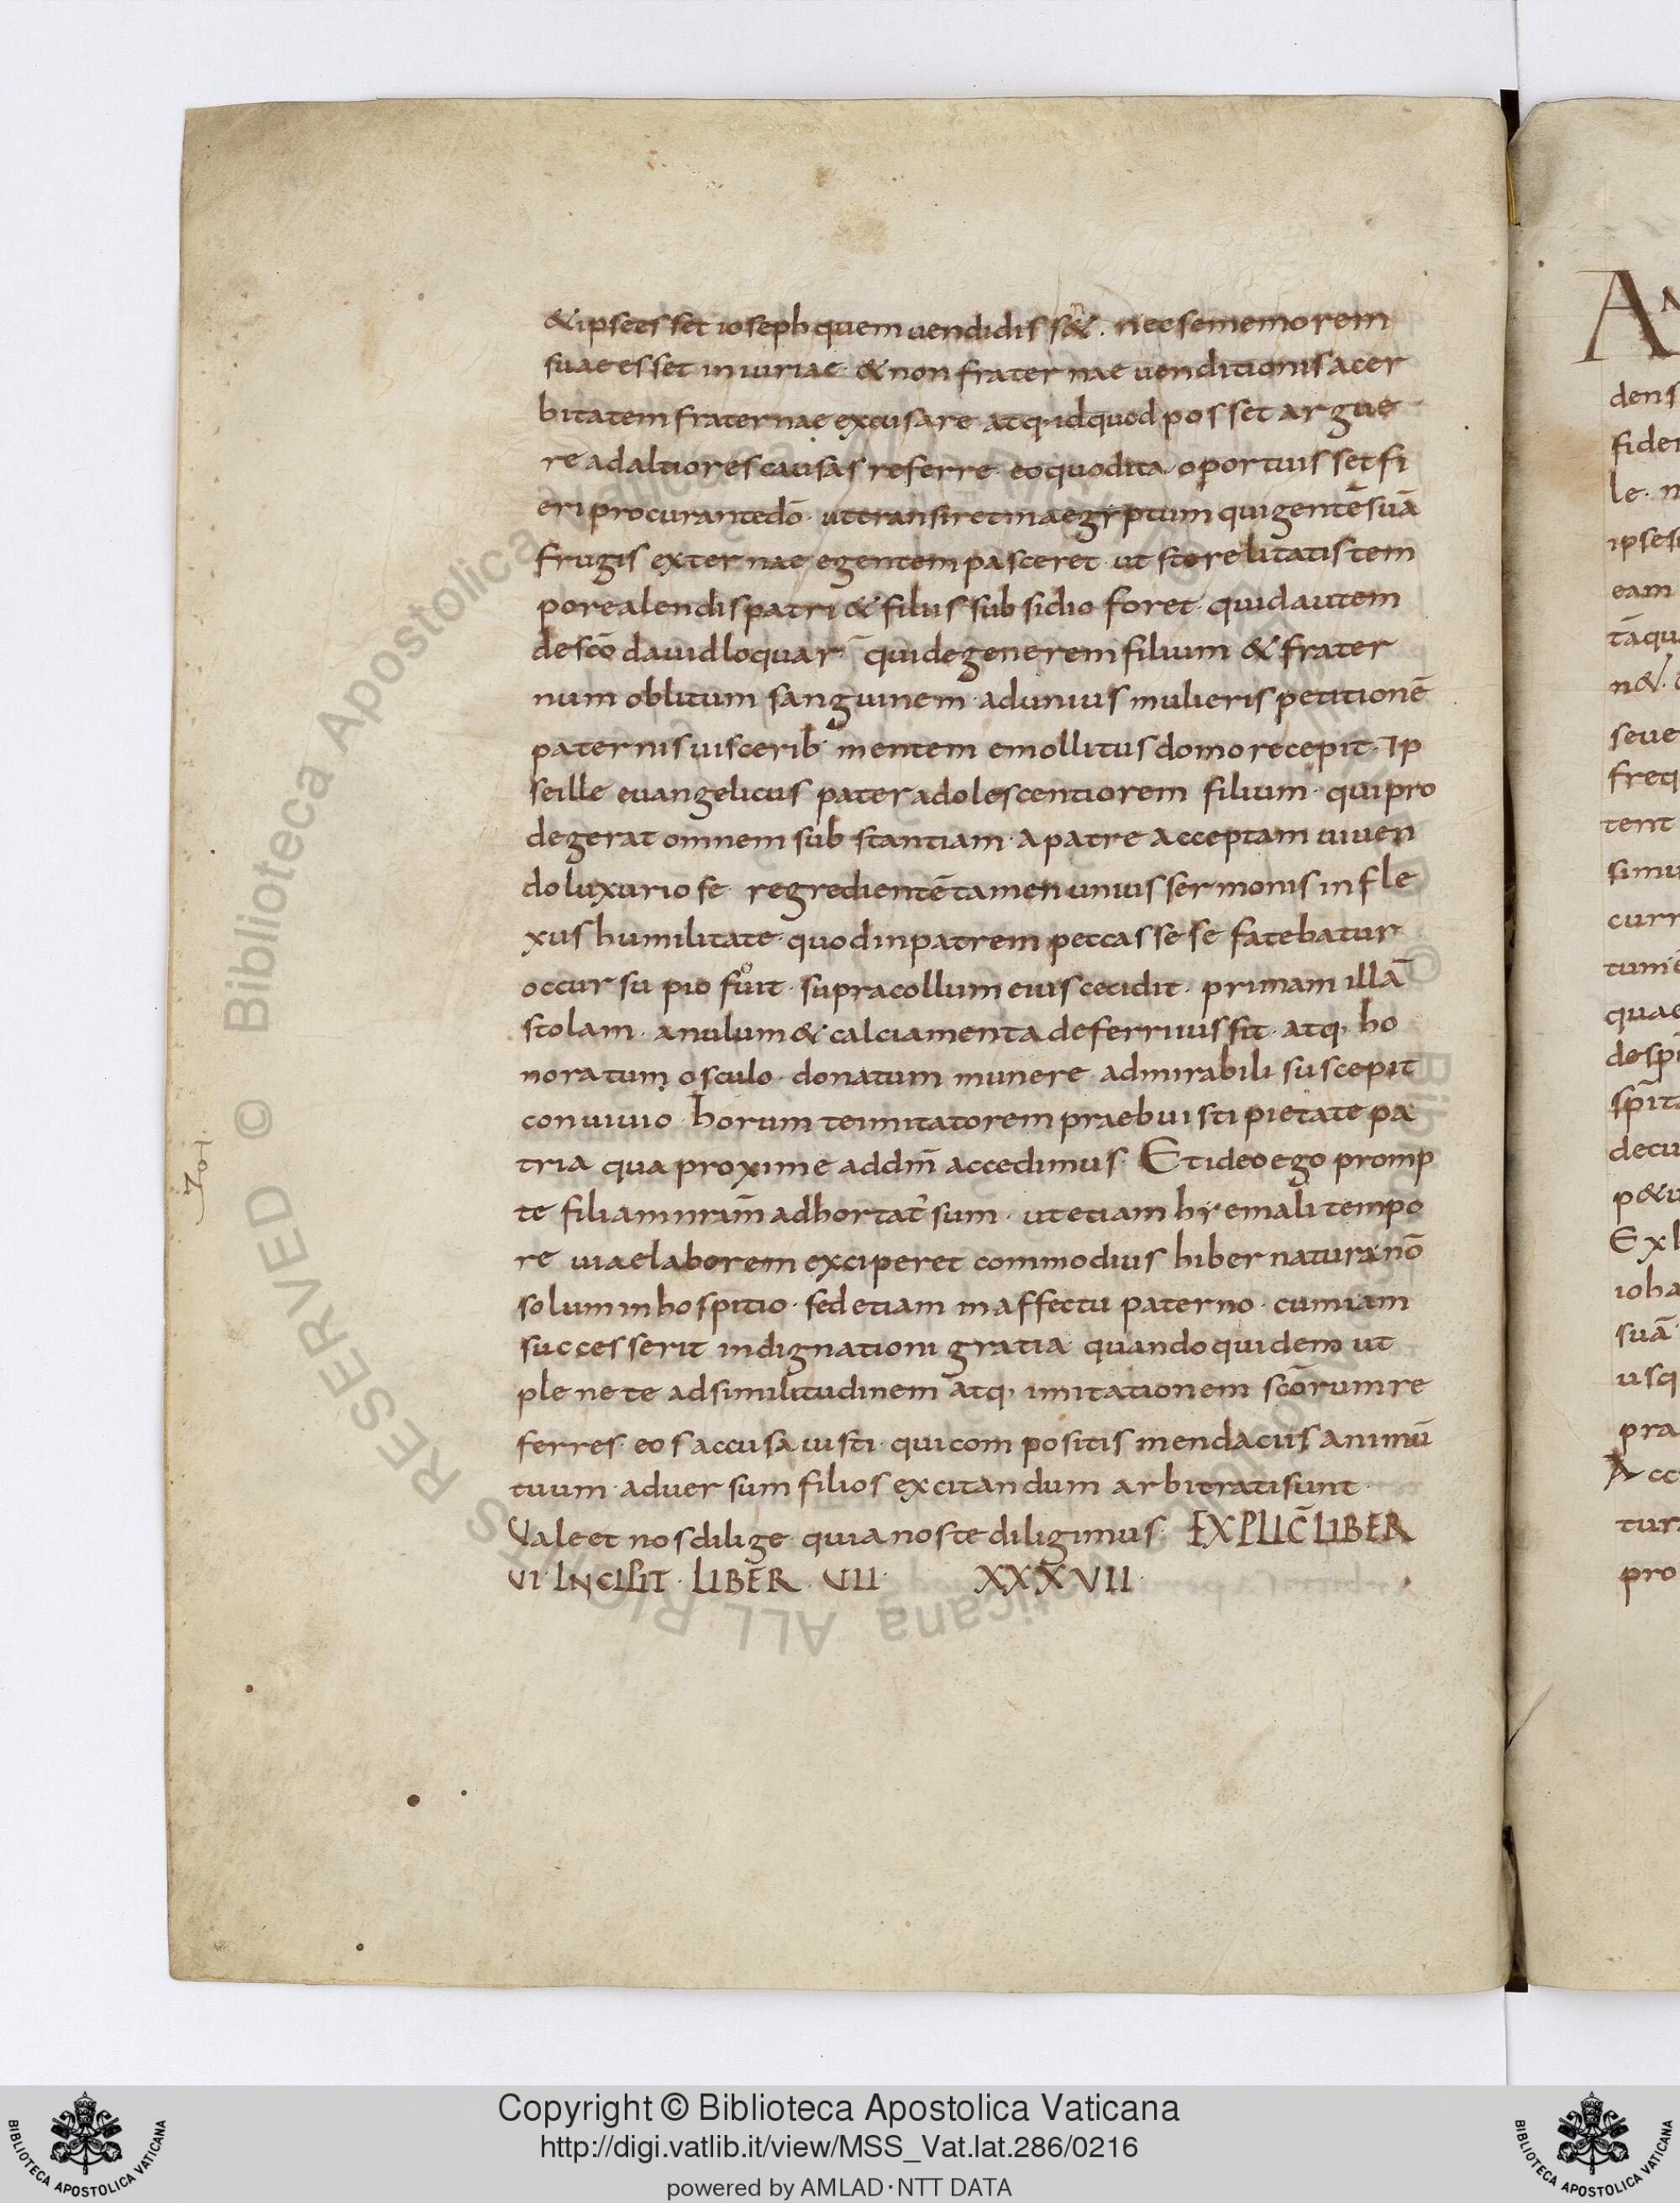 & ipse esset ioseph quem uendidiss&. nec se memorem
suae esset iniuriae. & non fraternae uenditionis acer
bitatem fraternae excusare atq; id quod posset argue
re ad altiores causas referre. eo quod ita oportuisset fi
eri procurante dō. ut transiret in aegyptum qui gentē suā
frugis externae egentem pasceret. ut storelitatis tem
pore alendis patri & filiis subsidio foret. quid autem
de scō dauid loquar. qui degenerem filium & frater
num oblitum sanguinem. ad unius mulieris petitionē
paternis uiscerib; mentem emollitus domo recepit. Ip
se ille euangelicus pater adolescentiorem filium. qui pro
degerat omnem substantiam. a patre acceptam uiuen
do luxuriose. regredientē tamen unius sermonis infle
xus humilitate. quod in patrem peccasse se fatebatur
occursu pio fuit. supra collum eius cecidit. primam illā
stolam. anulum & calciamenta deferri iussit. atq; ho
noratum osculo. donatum munere. admirabili suscepit
conuiuio. horum te imitatorem praebuisti pietate pa
tria qua proxime ad dm̄ accedimus. Et ideo ego promp
te filiam nrām adhortat' sum. ut etiam hyemali tempo
re uiae laborem exciperet commodius hibernatura nō
solum in hospitio. sed etiam in affectu paterno. cum iam
successerit indignationi gratia. quando quidem ut
plene te ad similitudinem atq; imitationem scōrum re
ferres. eos accusauisti. qui compositis mendaciis animū
tuum. aduersum filios excitandum arbitrati sunt.
Vale et nos dilige. quia nos te diligimus. EXPLIC̄ LIBER
VI. INCIPIT. LIBER. VII. XXXVII.
701
AN
dens
fider
le. n
ipse
eam
tāqu
n&.
seue
freq
tent
simu
curr
tum
quae
despi
sp̄it
decu
p&u
Ex
ioha
suā
usq
pra
Acc
tur
pro
© Biblioteca Apostolica Vaticana ALL RIGHTS RESERVED
Copyright © Biblioteca Apostolica Vaticana
http://digi.vatlib.it/view/MSS_Vat.lat.286/0216
powered by AMLAD·NTT DATA
BIBLIOTECA APOSTOLICA VATICANA
BIBLIOTECA APOSTOLICA VATICANA